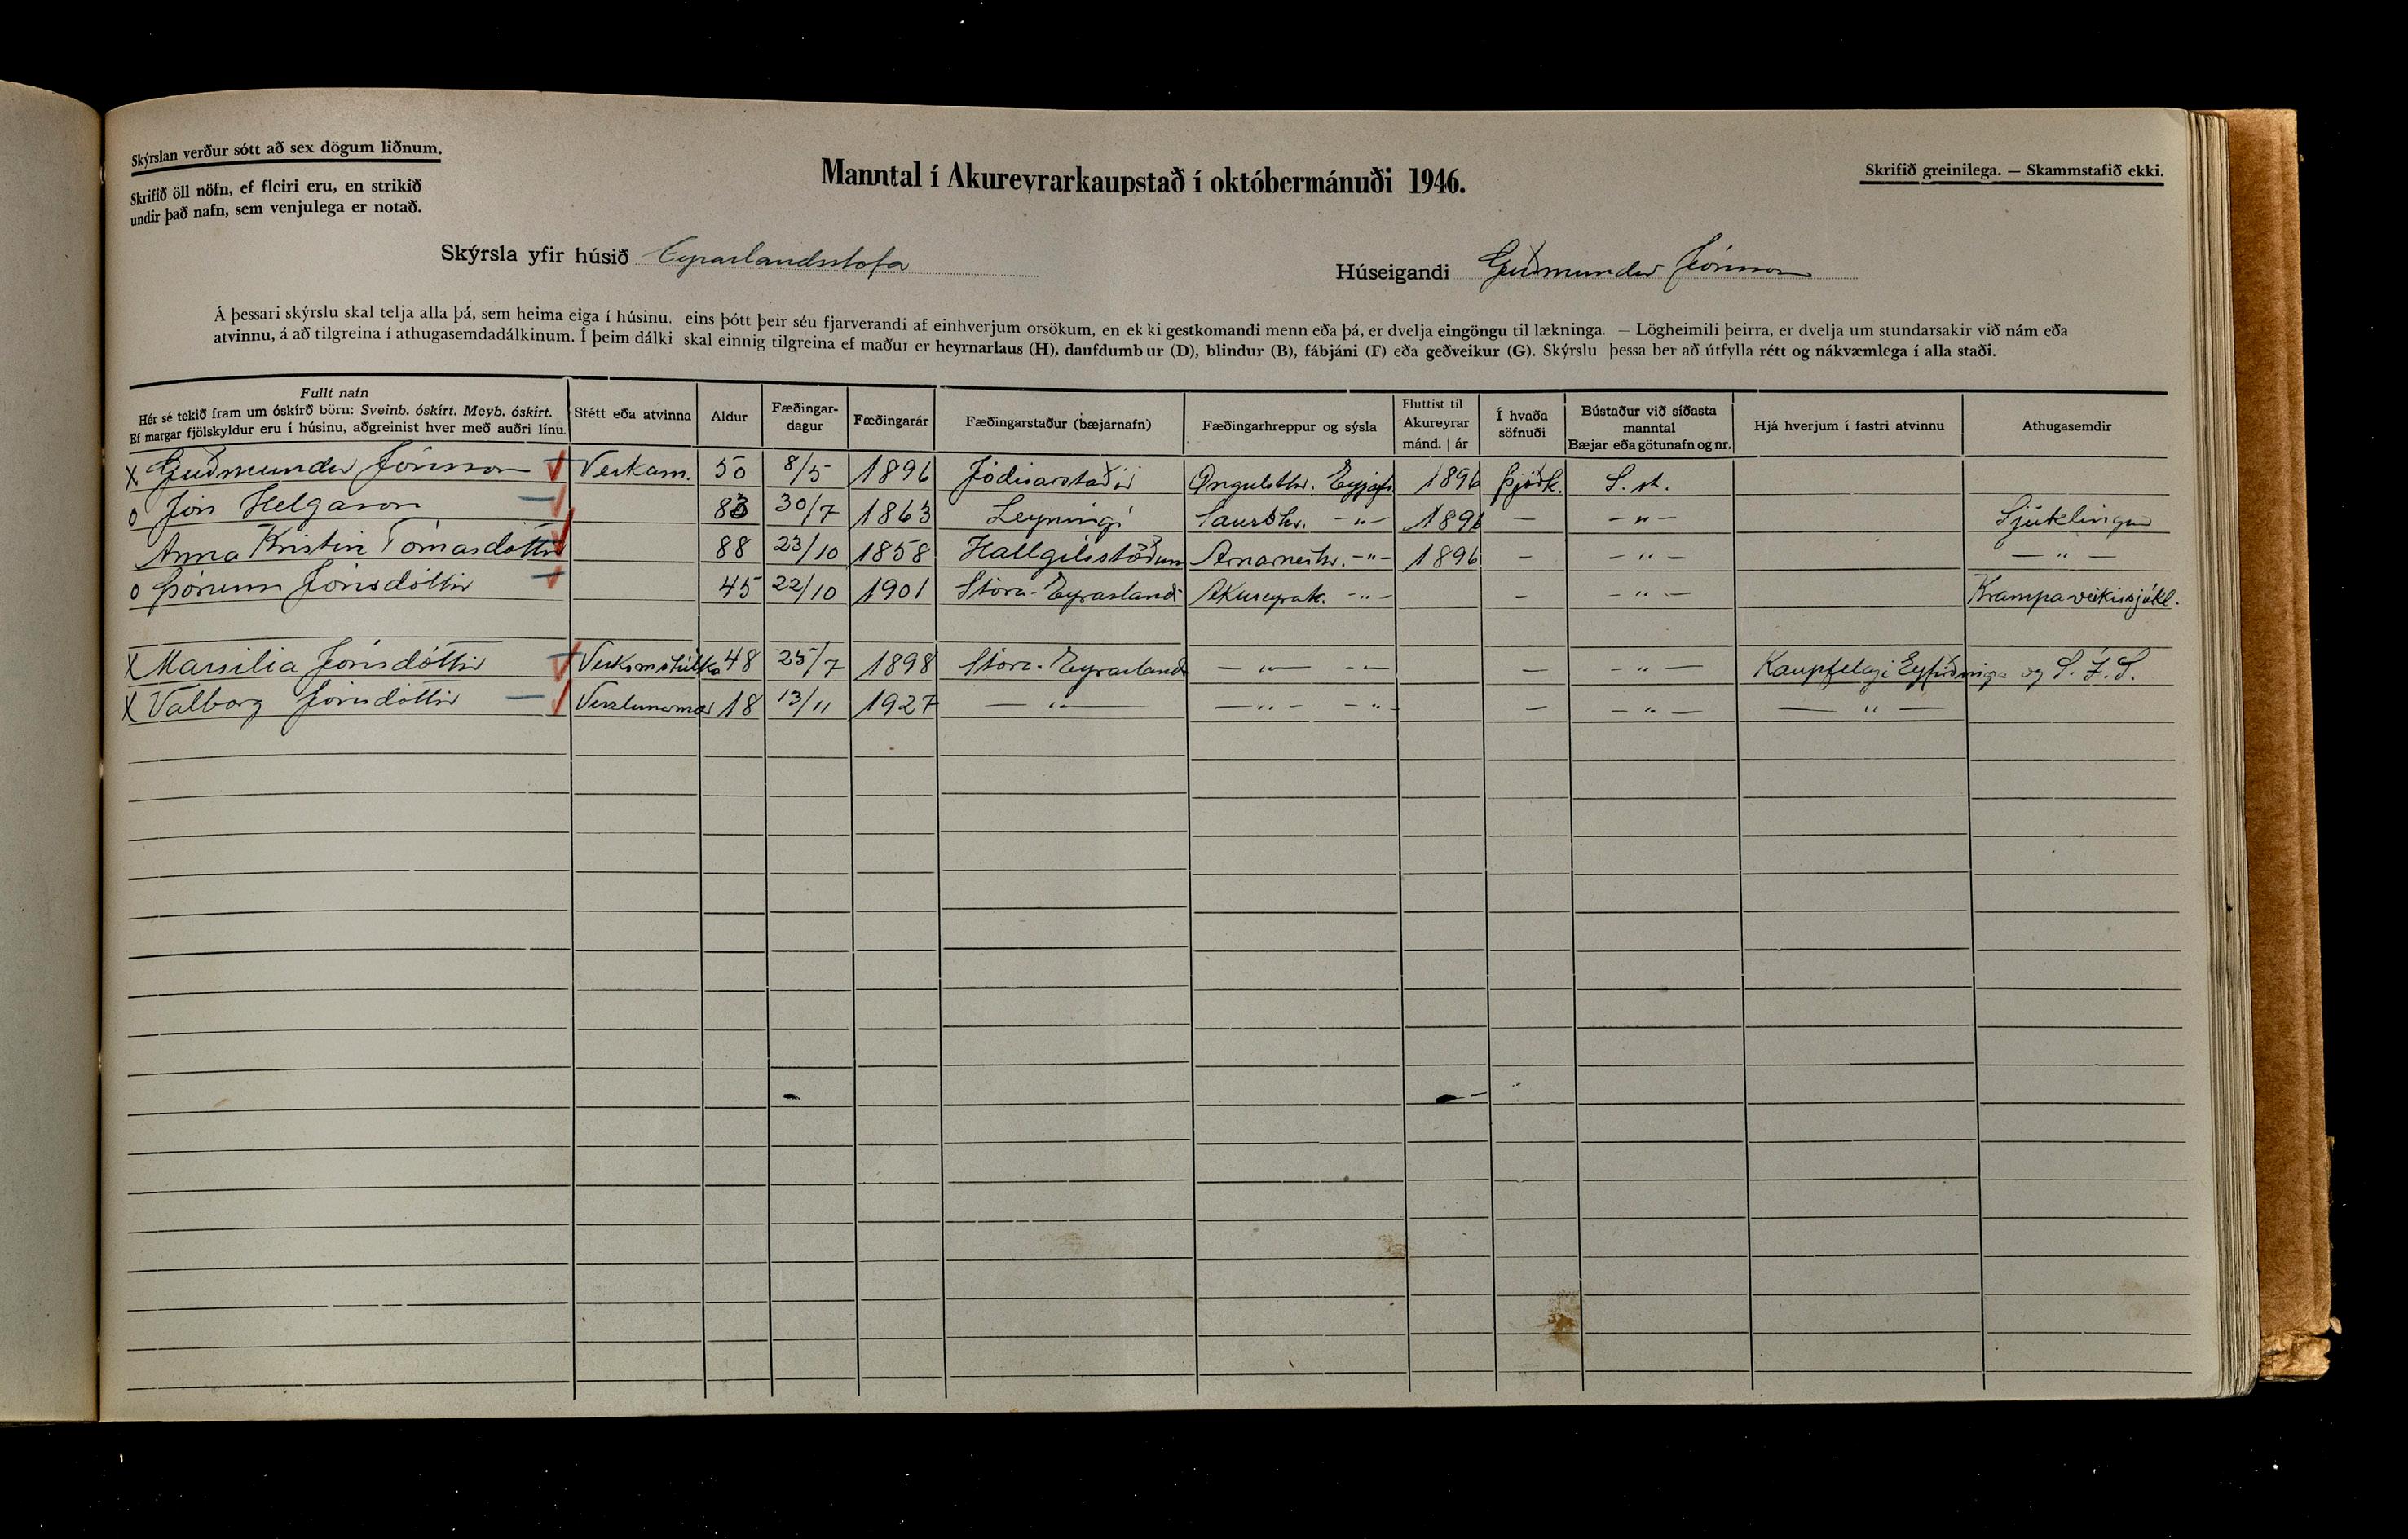 Skýrslan verður sótt að sex dögum liðnum.
Skrifið öll nöfn, ef fleiri eru, en strikið
undir það nafn, sem venjulega er notað.
Manntal í Akureyrarkaupstað í októbermánuði 1946.
Skrifið greinilega. — Skammstafið ekki.
Skýrsla yfir húsið Eyrarlandsstofa
Húseigandi Guðmundur Jónsson
Á þessari skýrslu skal telja alla þá, sem heima eiga í húsinu. eins þótt þeir séu fjarverandi af einhverjum orsökum, en ekki gestkomandi menn eða þá, er dvelja eingöngu til lækninga. — Lögheimili þeirra, er dvelja um stundarsakir við nám eða
atvinnu, á að tilgreina í athugasemdadálkinum. Í þeim dálki skal einnig tilgreina ef maður er heyrnarlaus (H), daufdumbur (D), blindur (B), fábjáni (F) eða geðveikur (G). Skýrslu þessa ber að útfylla rétt og nákvæmlega í alla staði.
Fullt nafn
Hér sé tekið fram um óskírð börn: Sveinb. óskírt. Meyb. óskírt.
Ef margar fjölskyldur eru í húsinu, aðgreinist hver með auðri línu.
Stétt eða atvinna
Aldur
Fæðingar-
dagur
Fæðingarár
Fæðingarstaður (bæjarnafn)
Fæðingarhreppur og sýsla
Fluttist til
Akureyrar
mánd. | ár
Í hvaða
söfnuði
Bústaður við síðasta
manntal
Bæjar eða götunafn og nr.
Hjá hverjum í fastri atvinnu
Athugasemdir
X Guðmundur Jónsson Verkam. 50 8/5 1896 Jódísarstaðir Öngulsthr. Eyjafs 1896 Þjóðk. S. st.
o Jón Helgason 83 30/7 1863 Leyningi Saurbhr. -"- 1896 — -"- Sjúklingur
Anna Kristín Tómasdóttir 88 23/10 1858 Hallgilsstöðum Arnarneshr. -"- 1896 - -"- -"-
o Þórunn Jónsdóttir 45 22/10 1901 Stóra-Eyrarland Akureyrak. -"- - -"- Krampaveikissjúkl.
X Marsilía Jónsdóttir Verksmstúlka 48 25/7 1898 Stóra-Eyrarlandi -"- -"- — -"- Kaupfélagi Eyfirðinga og S.Í.S.
X Valborg Jónsdóttir Verzlunarmær 18 13/11 1927 -"- -"- -"- — -"- -"-